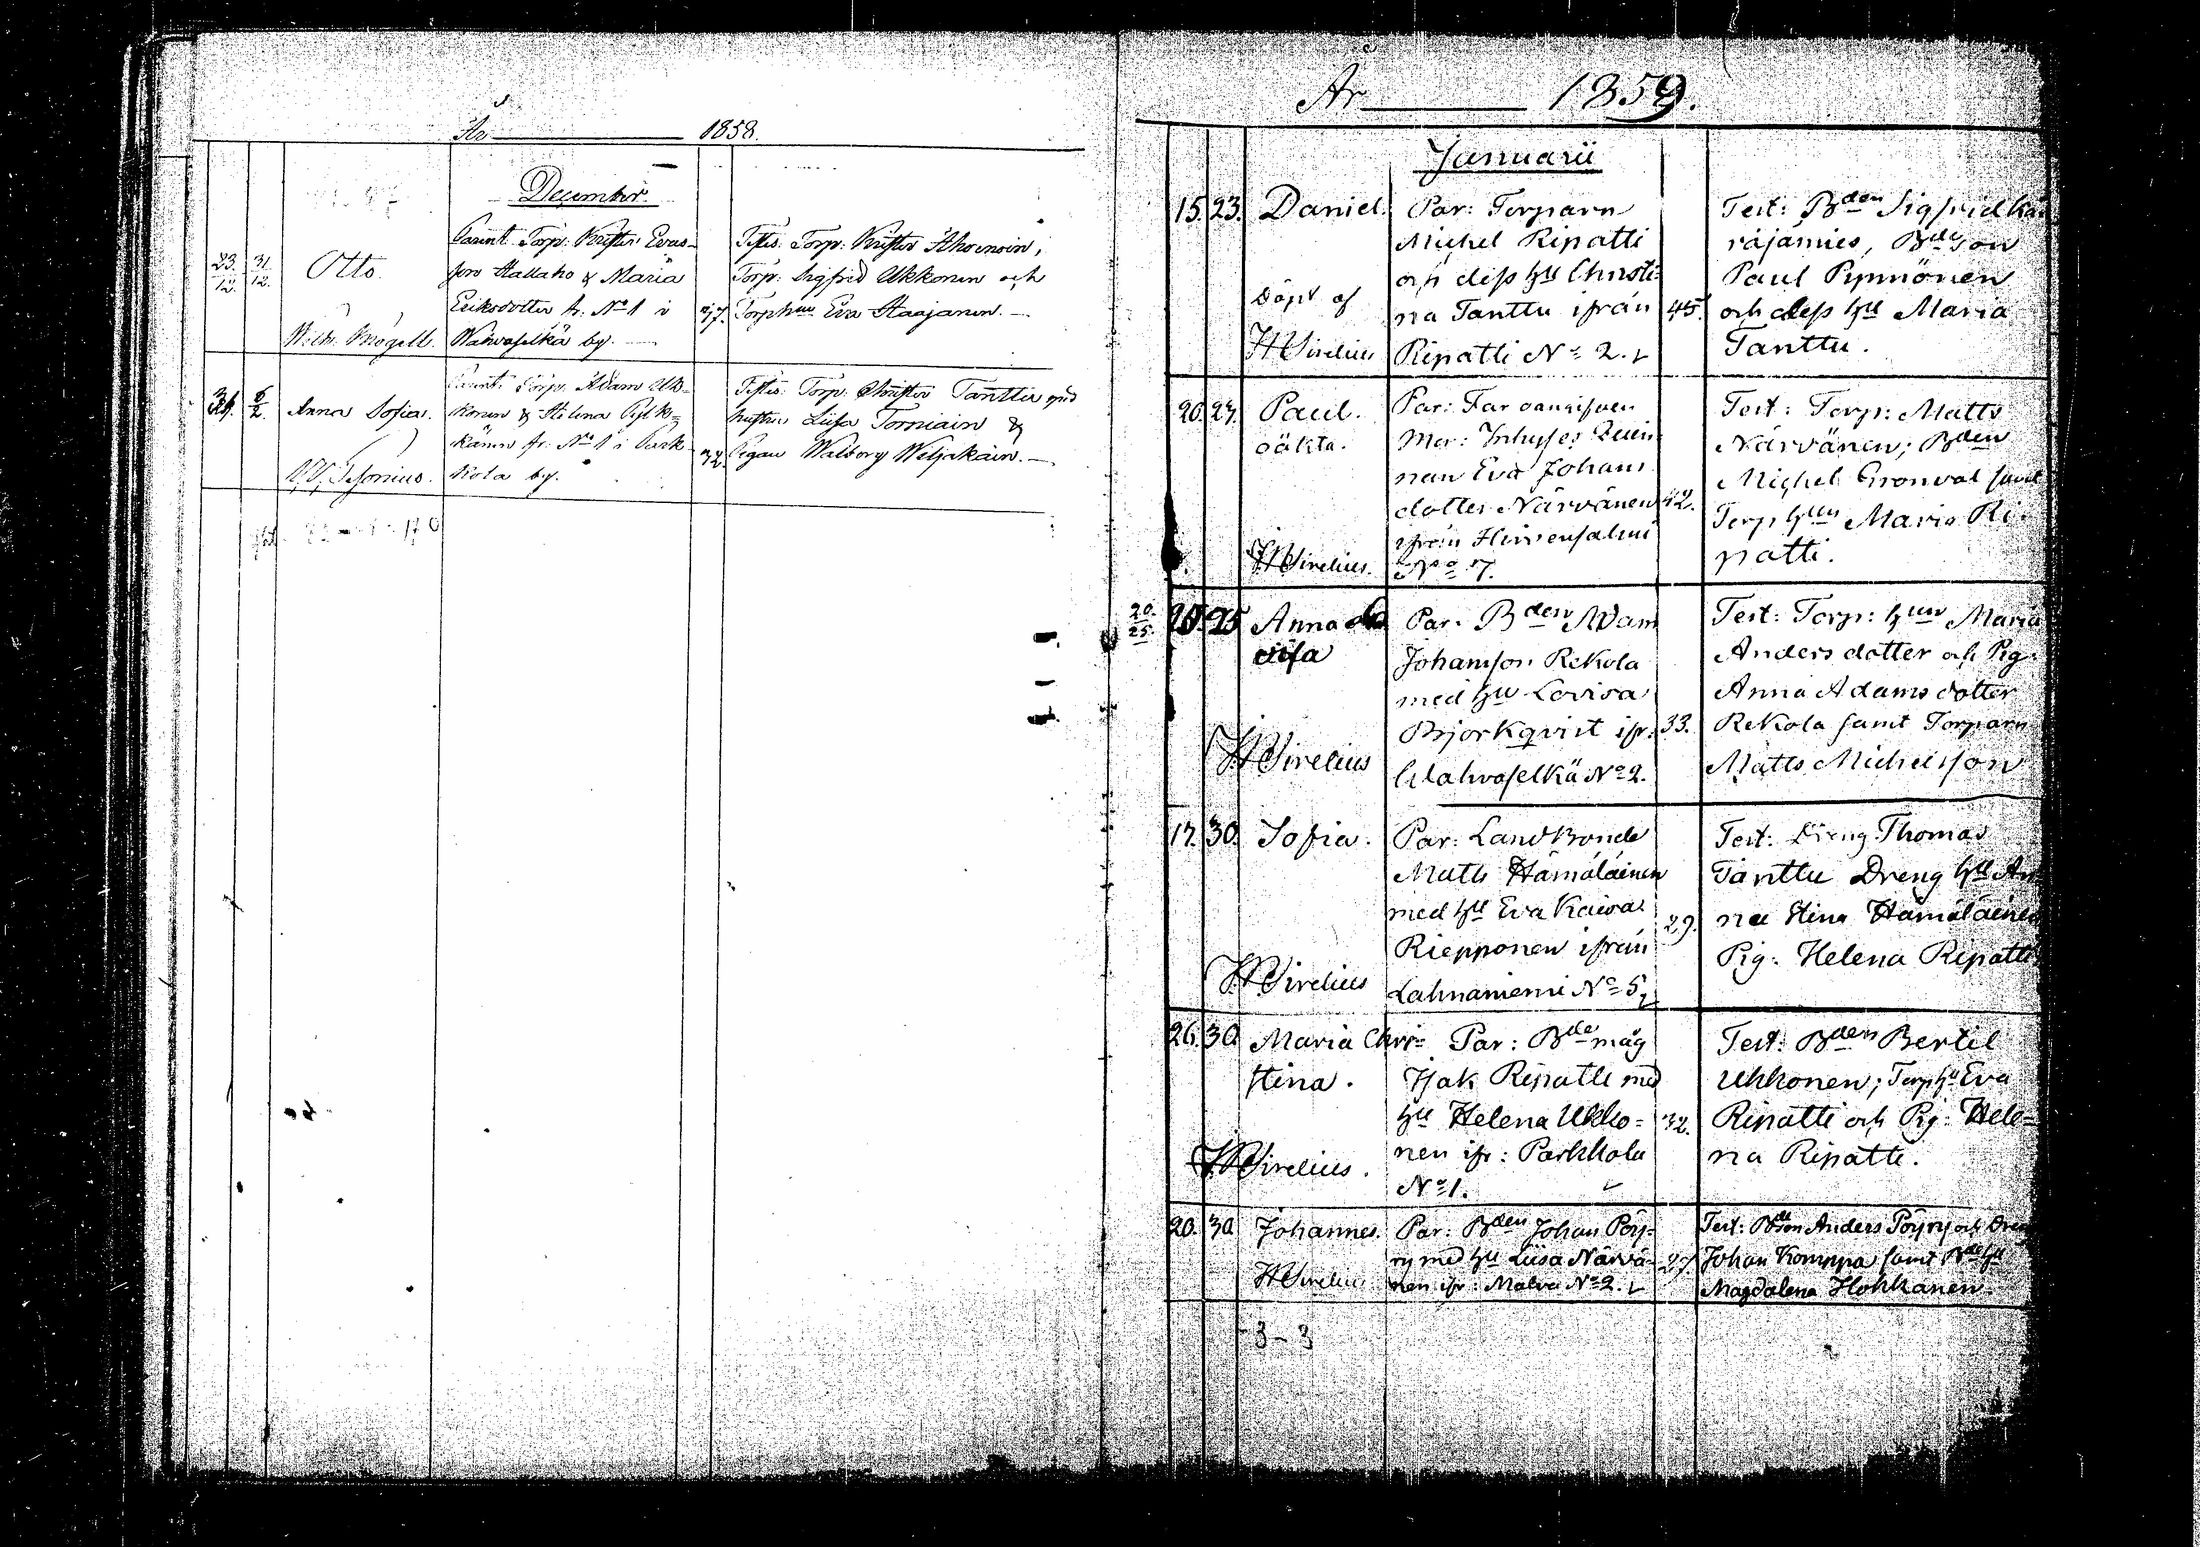 År 1858.
December.
23/12. 31/12. Otto.
Parent: Torp: Krister Evas-
son Hallaho & Maria
Eriksdotter fr. No 1 i
Wahvaselkä by.
37.
Testis: Torp: Krister Ahoinoin,
Torp: Sigfrid Ukkonen och
Torphuu Eva Haajanen.
Wilh. Mogell.
6/2. Anna Sofia.
Parent: Torp: Adam Uk-
konen & Helena Pylk-
känen fr. No 1 i Park-
kola by.
32.
Testis: Torp: Christer Tanttu med
hustru Liisa Torniain &
Pigan Walborg Weljakain.
År 1859.
Januarii
15. 23. Daniel.
Döpt af
JWSirelius
Par: Torparn
Michel Ripatti
och dess hu Christi-
na Tanttu ifrån
Ripatti No 2.
45.
Test: Bden Sigfrid
räjämies, Bdeson
Paul Pynnönen
och dess hu Maria
Tanttu.
20. 27. Paul.
oäkta.
JWSirelius.
Par: Far
Mor: Inhyses Quin-
nan Eva Johans
dotter Närvänen
ifrån Hirvensalmi
No 7.
42.
Test: Torp: Matts
Närvänen; Bden
Michel Gronval samt
Torphuun Maria Ri-
patti.
20/25.
20. 25 Anna
JWSirelius
Par: Bden Adam
Johansson Rekola
med hu Lovisa
Bjorkqvist ifr:
Wahvaselkä No 2.
33.
Test: Torp: hun Maria
Andersdotter och Pig:
Anna Adamsdotter
Rekola samt Torparn
Matts Michelsson
17. 30. Sofia.
JWSirelius
Par: Landbonde
Matts Hämäläinen
med hu Eva Kaisa
Riepponen ifrån
Lahnaniemi No 5
29.
Test: Dreng Thomas
Tanttu Dreng hu An
na Stina Hämäläinen
Pig: Helena Ripatti
26. 30. Maria Chri-
stina.
JWSirelius.
Par: Bde måg
Isak Ripatti med
hu Helena Ukko-
nen ifr: Parkkola
No 1.
32.
Test: Bden Bertil
Ukkonen; Torphu Eva
Ripatti och Pig: Hele-
na Ripatti.
20. 30 Johannes.
JWSirelius
Par: Bden Johan Pöy-
ry med hu Liisa Närvä-
nen ifr: Malva No 2.
27.
Test: Bdeson Anders Pöyry och Dreng
Johan Komppa samt Bdehu
Magdalena Hokkanen.
3 - 3